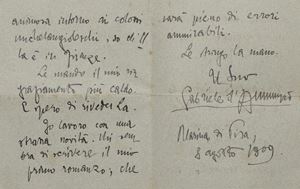 ancora intorno ai colori
michelangioleschi, so ch'Ella
è in Firenze.
Le mando il mio
più caldo.
E spero di rivederLa.
Io lavoro con una
strana novità. Mi sembra
di scrivere il mio
primo romanzo; che
sarà pieno di errori
ammirabili.
Le stringo la mano.
Il Suo
Gabriele d'Annunzio
Marina di Pisa,
8 agosto 1909